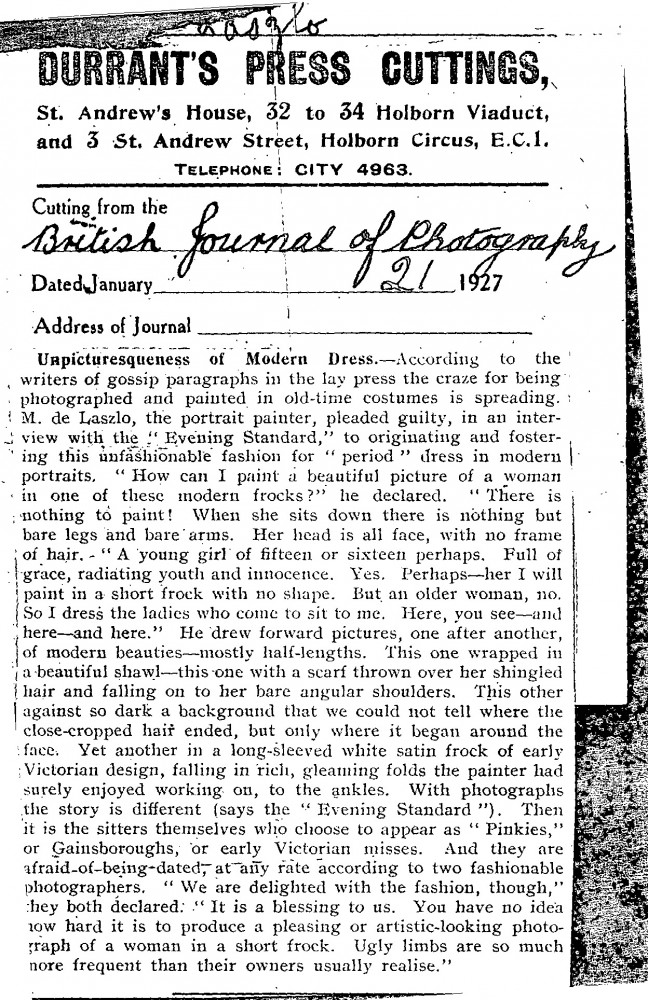 Laszlo
DURRANT'S PRESS CUTTINGS,
St. Andrew's House, 32 to 34 Holborn Viaduct,
and 3 St. Andrew Street, Holborn Circus, E.C.1.
TELEPHONE: CITY 4963.
Cutting from the
British Journal of Photography
Dated January 21 1927
Address of Journal
Unpicturesqueness of Modern Dress.—According to the
writers of gossip paragraphs in the lay press the craze for being
photographed and painted in old-time costumes is spreading.
M. de Laszlo, the portrait painter, pleaded guilty, in an inter-
view with the "Evening Standard," to originating and foster-
ing this unfashionable fashion for "period" dress in modern
portraits. "How can I paint a beautiful picture of a woman
in one of these modern frocks?" he declared. "There is
nothing to paint! When she sits down there is nothing but
bare legs and bare arms. Her head is all face, with no frame
of hair. "A young girl of fifteen or sixteen perhaps. Full of
grace, radiating youth and innocence. Yes. Perhaps—her I will
paint in a short frock with no shape. But an older woman, no.
So I dress the ladies who come to sit to me. Here, you see—and
here—and here." He drew forward pictures, one after another,
of modern beauties—mostly half-lengths. This one wrapped in
a beautiful shawl—this one with a scarf thrown over her shingled
hair and falling on to her bare angular shoulders. This other
against so dark a background that we could not tell where the
close-cropped hair ended, but only where it began around the
face. Yet another in a long-sleeved white satin frock of early
Victorian design, falling in rich, gleaming folds the painter had
surely enjoyed working on, to the ankles. With photographs
the story is different (says the "Evening Standard"). Then
it is the sitters themselves who choose to appear as "Pinkies,"
or Gainsboroughs, or early Victorian misses. And they are
afraid-of-being-dated, at any rate according to two fashionable
photographers. "We are delighted with the fashion, though,"
they both declared. "It is a blessing to us. You have no idea
how hard it is to produce a pleasing or artistic-looking photo-
graph of a woman in a short frock. Ugly limbs are so much
more frequent than their owners usually realise."